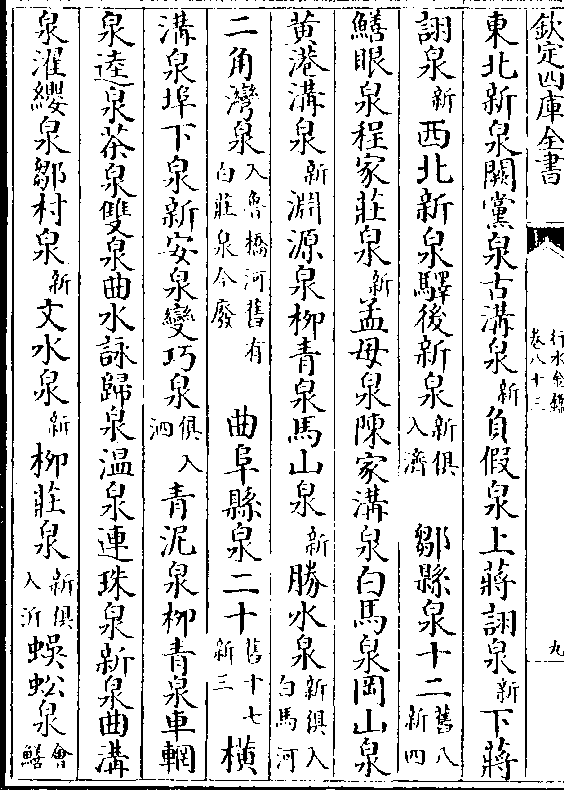 欽定四庫全書
行水金鑑
卷八十三
九
東北新泉闕黨泉古溝泉新負假泉上蔣詡泉新下蔣
詡泉新西北新泉驛後新泉新俱入濟鄒縣泉十二舊八新四
鱔眼泉程家莊泉新孟母泉陳家溝泉白馬泉岡山泉
黄港溝泉新淵源泉柳青泉馬山泉新勝水泉新俱入白馬河
二角灣泉入魯橋河舊有白莊泉今廢曲阜縣泉二十舊十七新三橫
溝泉埠下泉新安泉變巧泉俱入泗青泥泉柳青泉車輞
泉逵泉茶泉雙泉曲水詠歸泉温泉連珠泉新泉曲溝
泉濯纓泉鄒村泉新文水泉新柳莊泉新俱入沂蜈蚣泉會鱔